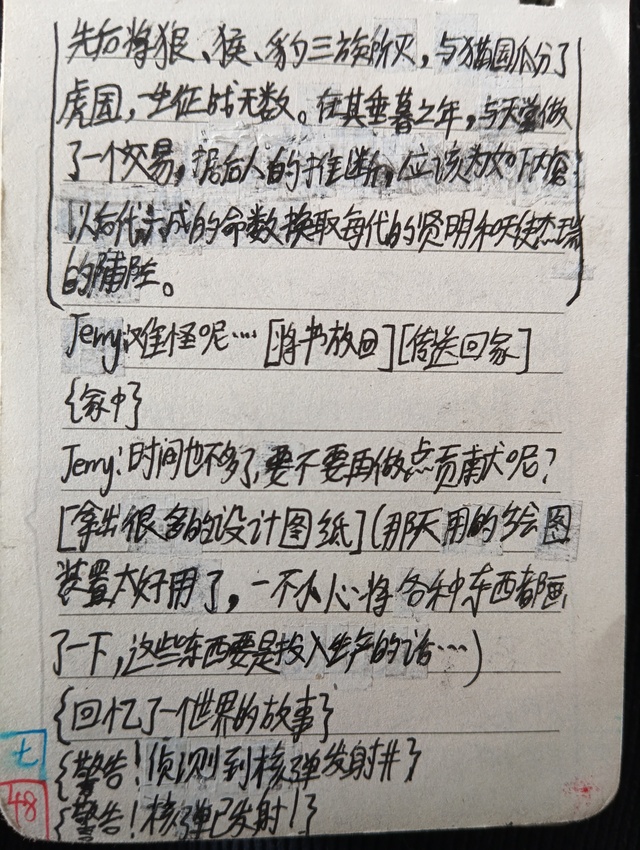 先后将狠、猴、豹三族所灭，与猫国瓜分了
虎国，一生征战无数。在其垂暮之年，与天堂做
了一个交易，据后人的推断，应该为如下内容：
以后代 的命数换取每代的贤明和天使杰瑞
的陪 。
Jerry:难怪呢…[将书放回][传送回家]
{家中}
Jerry:时间也不多了,要不要再做点贡献呢?
[拿出很多的设计图纸](那天用的绘图
装置太好用了，一不小心将各种东西都画
了一下,这些东西要是投入生产的话…)
{回忆了一个世界的故事}
{警告!侦测到核弹发射井}
{警告!核弹已发射!}
七
48